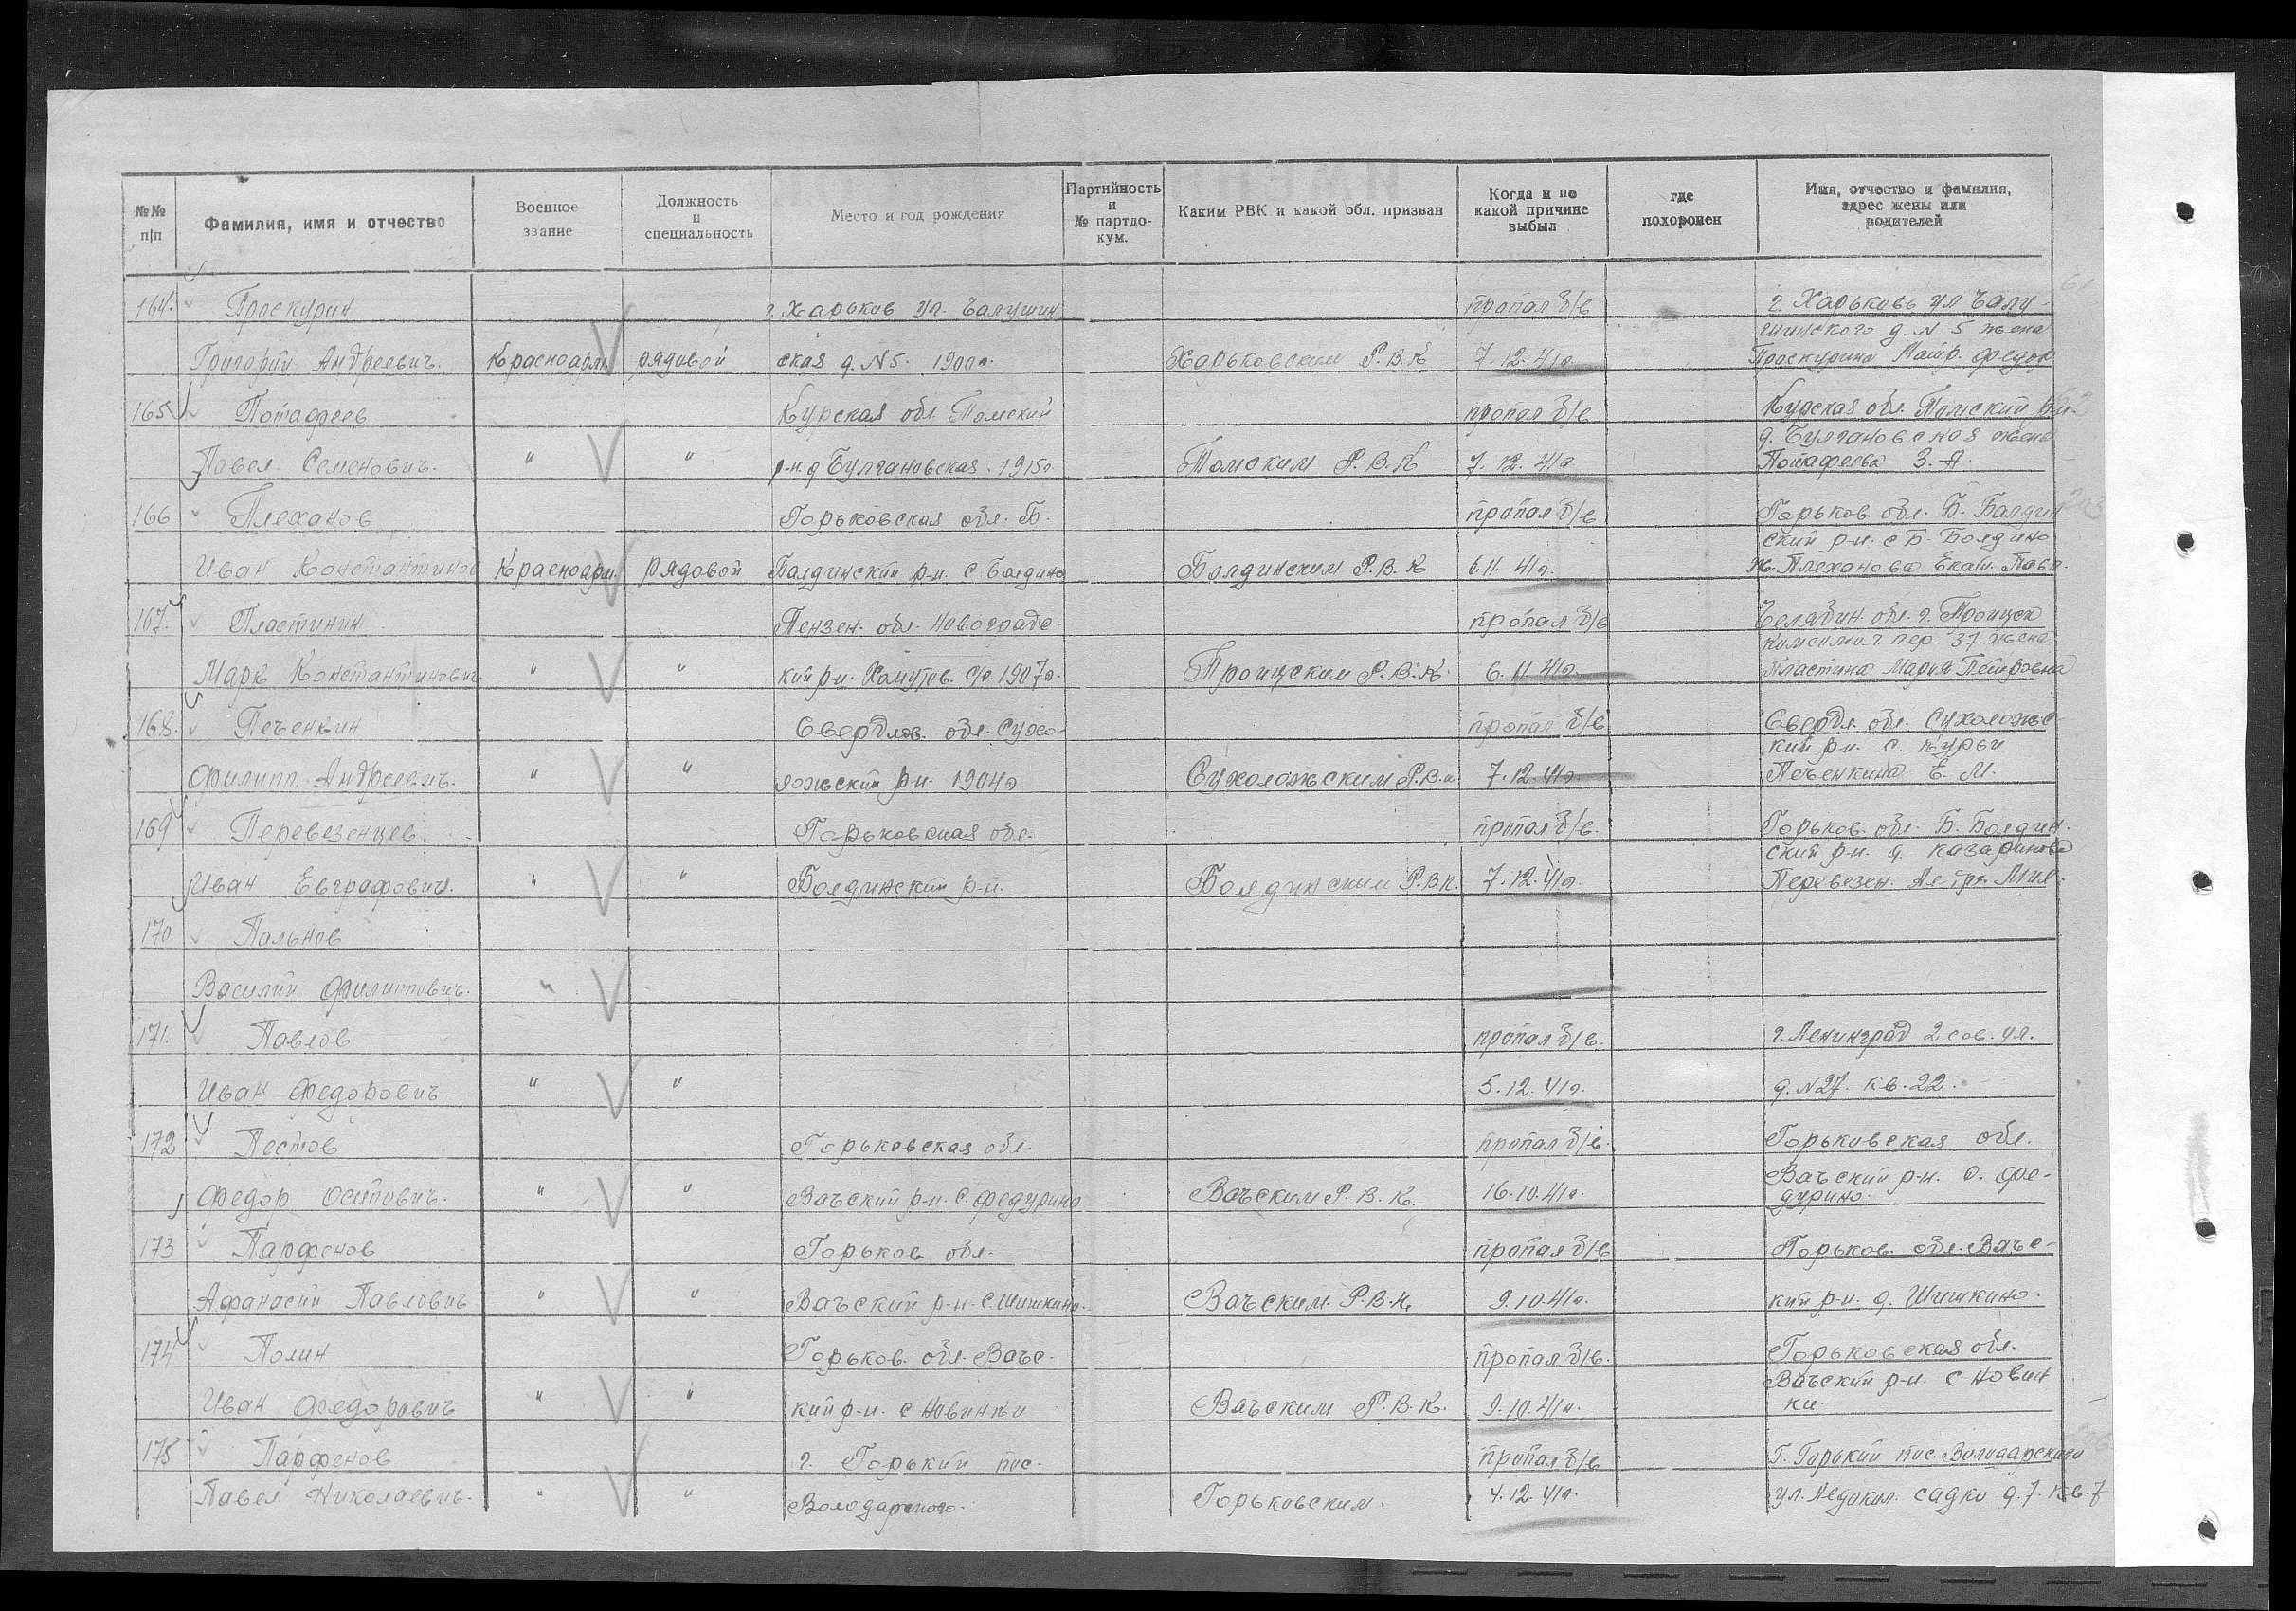 №№ п/п
Фамилия, имя и отчество
Военное звание
Должность и специальность
Место и год рождения
Партийность и № партдокум.
Каким РВК и какой обл. призван
Когда и по какой причине выбыл
где похоронен
Имя, отчество и фамилия, адрес жены или родителей
164. Проскурин г. Харьков ул. Балушин пропал б/в г. Харьковь ул Балу-
шинского д. N 5 жена
Григорий Андреевич. Красноарм. рядовой ская д. N 5. 1900г. Харьковским Р.В.К 7.12.41г. Проскурина Матр. Федор
165 Потафеев Курская обл. Томский пропал б/в Курская обл. Томский р-н.
д. Булгановская жена
Павел Семенович. " " р-н. д Булгановская. 1915г. Томским Р.В.К 7.12.41г Потафеева З. А.
166 Плеханов Горьковская обл. Б. пропал б/в Горьков. обл. Б. Балдин
ский р-н. с Б. Болдино
Иван Константинов Красноарм. рядовой Балдинский р-н. с Болдино Болдинским Р.В.К 6.11.41г. ж. Плеханова Екат. Павл.
167. Пластинин Пензен. обл. Новоградс- пропал б/в Челябин. обл. г. Троицк
пер. 37. жена
Марк Константинович " " кий р-н. Хомутов. с/с. 1907г. Троицским Р.В.К. 6.11.41г. Пластина Мария Петровна
168. Печенкин Свердлов. обл. Сухо- пропал б/в Свердл. обл. Сухоложс-
кий р-н. с. Курьи
Филипп. Андреевич. " " ложский р-н. 1904г. Сухоложским Р.В.К. 7.12.41г. Печенкина Е. М.
169 Перевезенцев Горьковская обл. пропал б/в. Горьков. обл. Б. Болдин.
ский р-н. д. Казариново
Иван Евграфович. " " Болдинский р-н. Болдинским Р.В.К. 7.12.41г. Перевезен. Мих.
170 Пальнов
Василий Филиппович. "
171. Павлов пропал б/в. г. Ленинград 2 сов. ул.
Иван Федорович " " 5.12.41г. д. N 27. кв. 22.
172 Пестов Горьковская обл. пропал б/в. Горьковская обл.
Федор Осипович. " " Вачский р-н. с. Федурино Вачским Р.В.К. 16.10.41г. Вачский р-н. д. Фе-
дурино.
173 Парфенов Горьков. обл. пропал б/в Горьков. обл. Вачс-
Афанасий Павлович " " Вачский р-н. с. Шишкино. Вачским. Р.В.К. 9.10.41г. кий р-н. д. Шишкино.
174 Полин Горьков. обл. Вачс- пропал б/в. Горьковская обл.
Иван Федорович " " кий р-н. с Новинки Вачским Р.В.К. 9.10.41г. Вачский р-н. с Новин
ки.
175 Парфенов г. Горький пос. пропал б/в Г. Горький пос. Володарского
Павел Николаевич. " " Володарского. Горьковским. 4.12.41г. ул. Ледокол. Садко д. 7. кв. 7